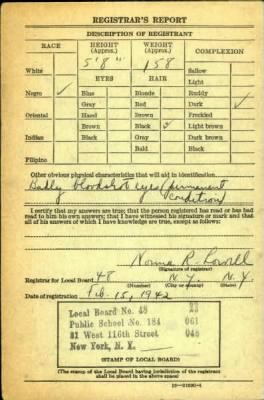 REGISTRAR'S REPORT
DESCRIPTION OF REGISTRANT
RACE HEIGHT (Approx.) WEIGHT (Approx.) COMPLEXION
5'8" 158
White Sallow
EYES HAIR Light
Negro ✓ Blue Blonde Ruddy
Gray Red Dark ✓
Oriental Hazel Brown Freckled
Brown Black Light brown
Indian Black Gray Dark brown
Bald Black
Filipino
Other obvious physical characteristics that will aid in identification
Badly bloodshot eyes (permanent
condition)
I certify that my answers are true; that the person registered has read or has had
read to him his own answers; that I have witnessed his signature or mark and that
all of his answers of which I have knowledge are true, except as follows:
Norma R.
(Signature of registrar)
Registrar for Local Board 48 N.Y. N.Y.
(Number) (City or county) (State)
Date of registration Feb. 15, 1942
Local Board No. 48
Public School No. 184 061
31 West 116th Street
New York, N. Y.
(STAMP OF LOCAL BOARD)
(The stamp of the Local Board having jurisdiction of the registrant
shall be placed in the above space.)